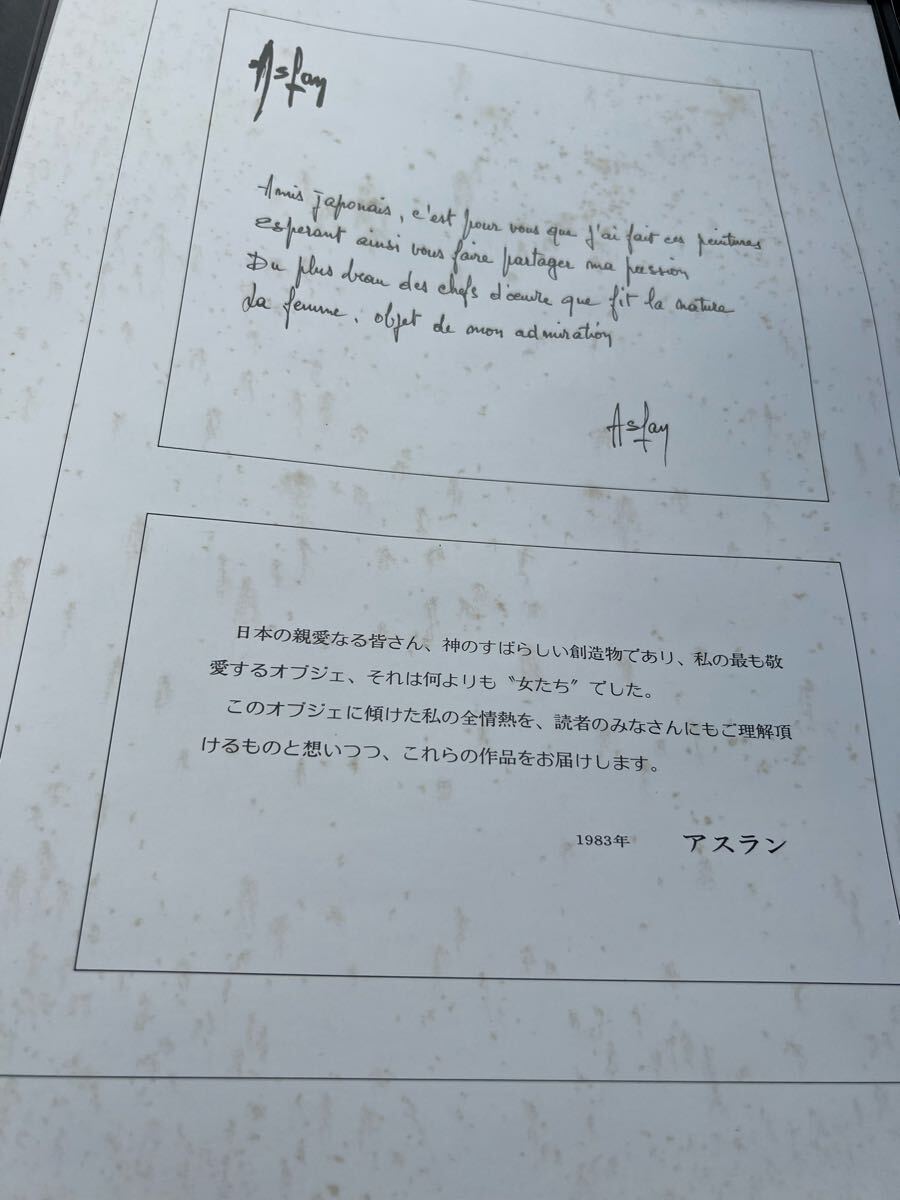 Aslan
Amis japonais, c'est pour vous que j'ai fait ces peintures
esperant ainsi vous faire partager ma passion
Du plus beau des chefs d'œuvre que fit la nature
La femme, objet de mon admiration
Aslan
日本の親愛なる皆さん、神のすばらしい創造物であり、私の最も敬
愛するオブジェ、それは何よりも〝女たち〟でした。
このオブジェに傾けた私の全情熱を、読者のみなさんにもご理解頂
けるものと想いつつ、これらの作品をお届けします。
1983年 アスラン